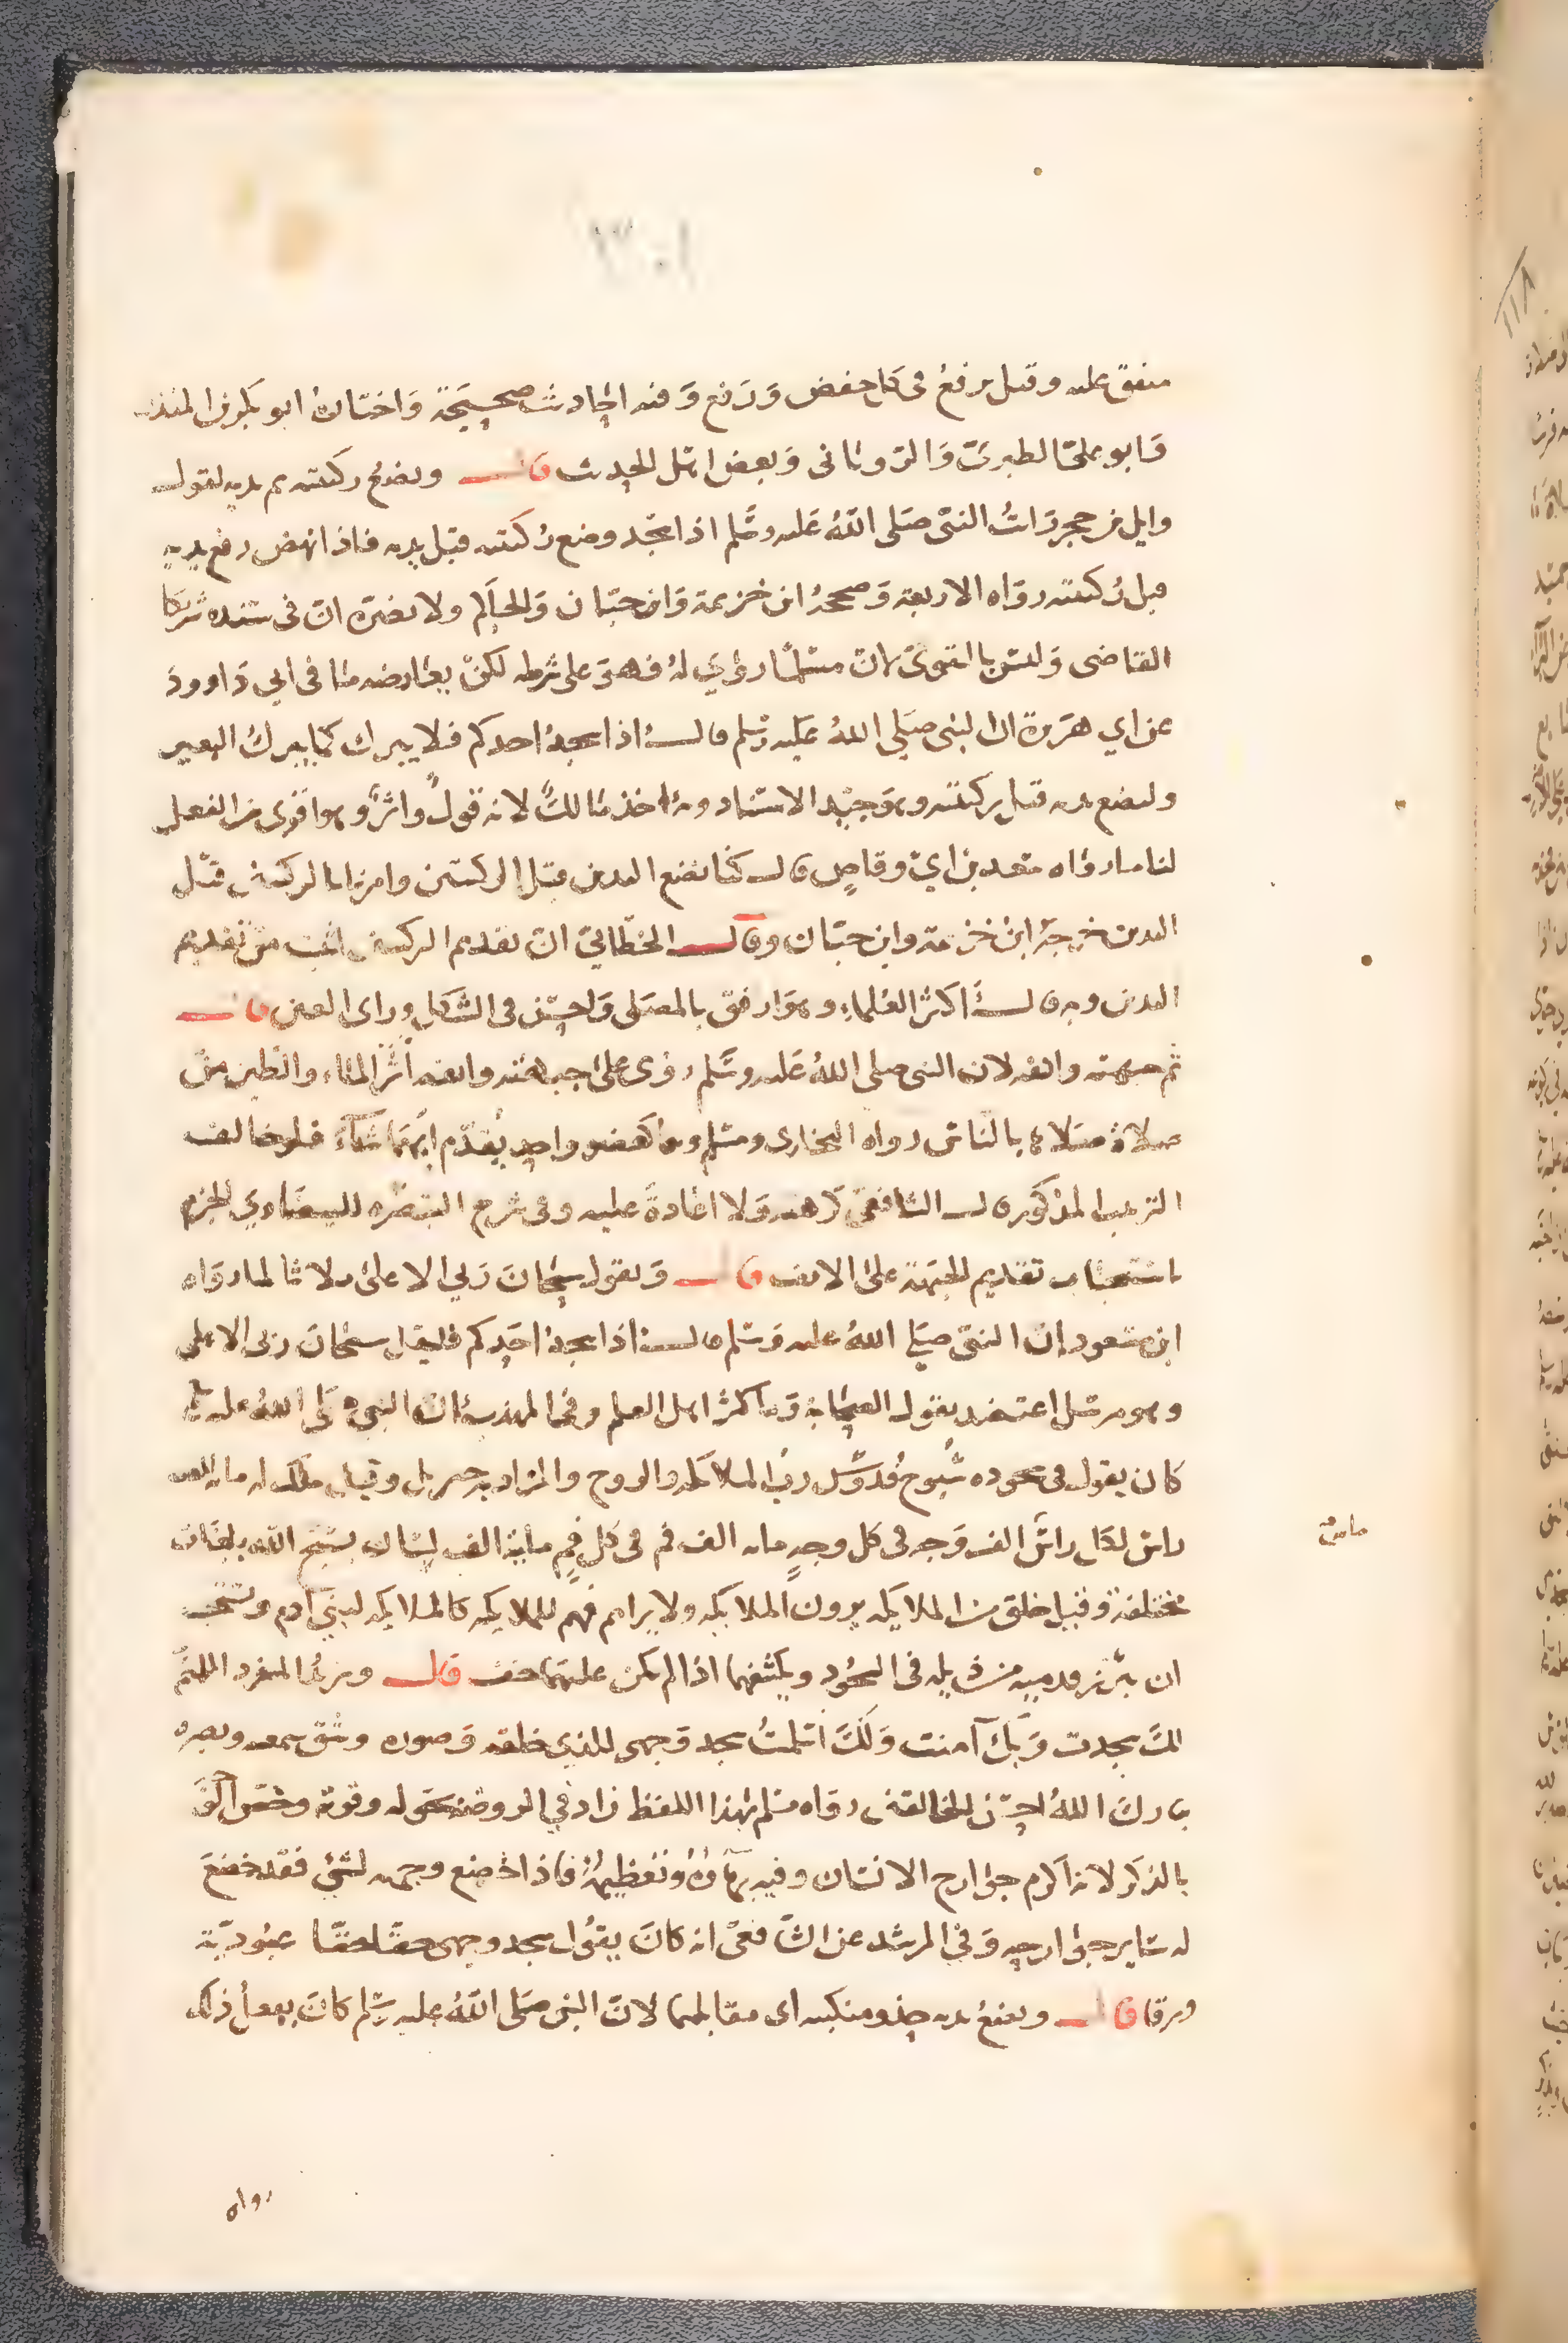 ١٣٠١
متفق عليه وقيل يرفع في كل خفض وَرَفع وَفيه احاديث صحيحة وَاختارهُ ابو بكر بن المنذر
وَابو علي الطبري وَالروياني وَبعض اهل الحديث قال ويضع ركبتيه ثم يديه لقول
وايل بن حجر رَاَيتُ النبي صَلى اللهُ عَليه وسَّلم اذا سَجد وضع رُكبتيه قبل يديه فاذا نهض رفع يديه
قبل رُكبتيه روَاه الاربعة وَصححهُ ابن خزيمة وَابن حبّان وَالحاكم ولا يضرّه انّ في سَنده شريكا
القاضي وَليس بالقوي لان مسْلمًا روَي لهُ فهوَ على شرطه لكنْ يعَارضه ما في ابي دَاوودَ
عن ابي هرَيرة ان النبي صَلى اللهُ عَليه وسلم قال اذا سجدَ احدكم فلا يبرك كما يبركُ البعير
وليضع يديه قبل ركبتيه وهوَ جيّد الاسْناد وبه اخذ مَالكٌ لانه قولٌ وامْرٌ وهوا قوى من الفعل
لنا ما رواه سَعد بن ابي وقاصٍ قال كنا نضع اليدين قبل الركبتين وامرنا بالركبتين قبْل
اليدين خرجهُ ابنُ خزيمة وابن حبّان وقال الخطّابيّ انّ تقديم الركبتين اثبت منْ تقديم
اليدين وبه قال اكثرُ العُلماءِ وهوَ ارفق بالمصَلي وَاحسَن في الشّكل وراى العين قال
ثم جبهته وانفه لان النبي صلى اللهُ عَليه وسَّلم رؤى علىَ جبهَته وانفه اثرُ الماء والطين منْ
صلاةٍ صَلاها بالنّاسْ رواه البخارى ومسْلم وهما كعضو واحدٍ يُقدّم ايّهمَا شآءَ فلو خالف
الترتيب المذكور قال الشافعي كرهته وَلا اعَادةَ عليه وفي شرح التبصَره للبيضَاوي الجزم
باستحباب تقديم الجبَهة علىَ الانف قال وَيقول سُبحَانَ رَبي الا علىَ ثلاثا لما روَاه
ابن مَسْعود ان النبّي صَلي اللهُ عليه وَسَلم قال اذا سَجدَ احَدكم فليقل سبحَانَ ربى الاعلى
وهو مرسَل اعتضد بقول الصحَابة وَبه اكثرُ اهل العلم وفي المهَذب ان النبي صَلى اللهُ عليه وسلم
كان يقول في سجوده سُبوحٌ قُدوّسٌ ربُّ الملائكه والروح والمرَاد به جبريل وقيل ملك له مايه الف
راسْ لكل راسٌ الف وَجه في كل وجهٍ مايه الف فم في كل فمٍ مايةُ الف لسَان يسبّح الله بلغَات
مختلفة وَقيل خلق من الملايكه يرون الملايكه ولا يراهم فهمُ للملايكه كالملايكه لبني آدم ويستحب
ان يبّرز قدميه من ذيله في السجُود ويكشفهما اذا لم يكنْ عليهمَا خف قال ويزيدُ المنفرد اللهمُّ
لكَ سجدت وَبكَ آمنت وَلكَ اسلمتُ سجد وَجهي للذي خلقه وَصوره وشقّ سمعه وبصره
تبَاركَ اللهُ احسَن الخالقين روَاه مسْلم بهَذا اللفظ زاد في الروضة بحَوله وقوته وخصّ الوَجه
بالذكر لانه اكرم جوَارح الانسَان وفيه بهآؤهُ وتعظيمُهُ فاذا خضع وجهه لشئ فقد خضعَ
له سَاير جوَارحه وَفي المرشد عن الشافعيّ انه كانَ يقوُل سجد وجهي حقًا حقًا عبُوديّة
ورقا قال ويضعُ يديه حذو منكبيه اى مقابلهما لانّ النبي صَلى اللهُ عليه وسّلم كانَ يفعلُ ذلك
رواه